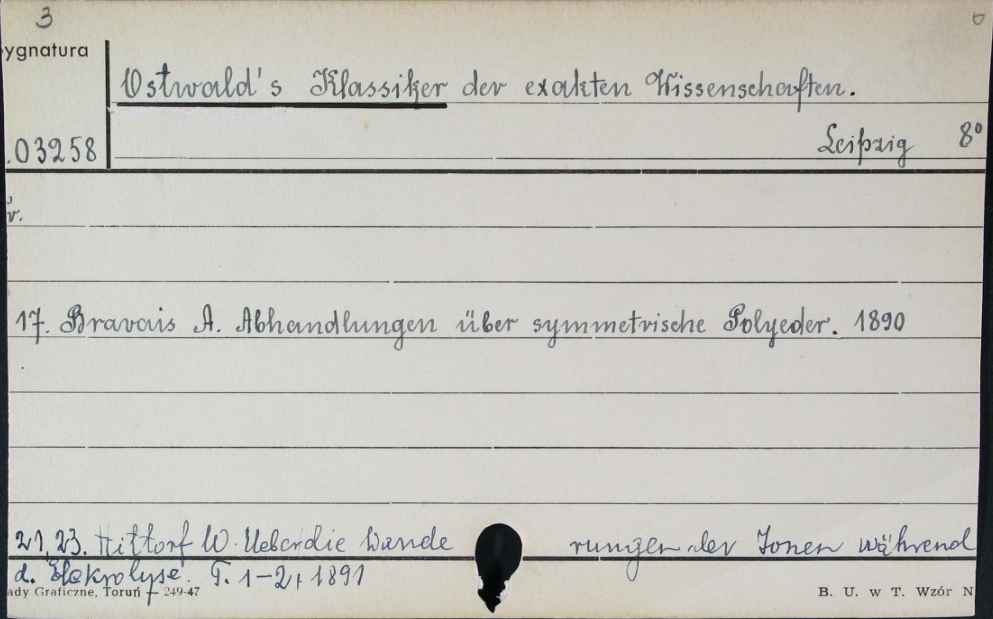 3
ygnatura
Ostwald's Klassiker der exakten Wissenschaften.
.03258
Leipzig 8°
v.
17. Bravais A. Abhandlungen über symmetrische Polyeder. 1890
21, 23. Hittorf W. Ueber die Wande rungen der Ionen während
d. Elekrolyse. T. 1-2, 1891
ady Graficzne, Toruń – 249-47
B. U. w T. Wzór N